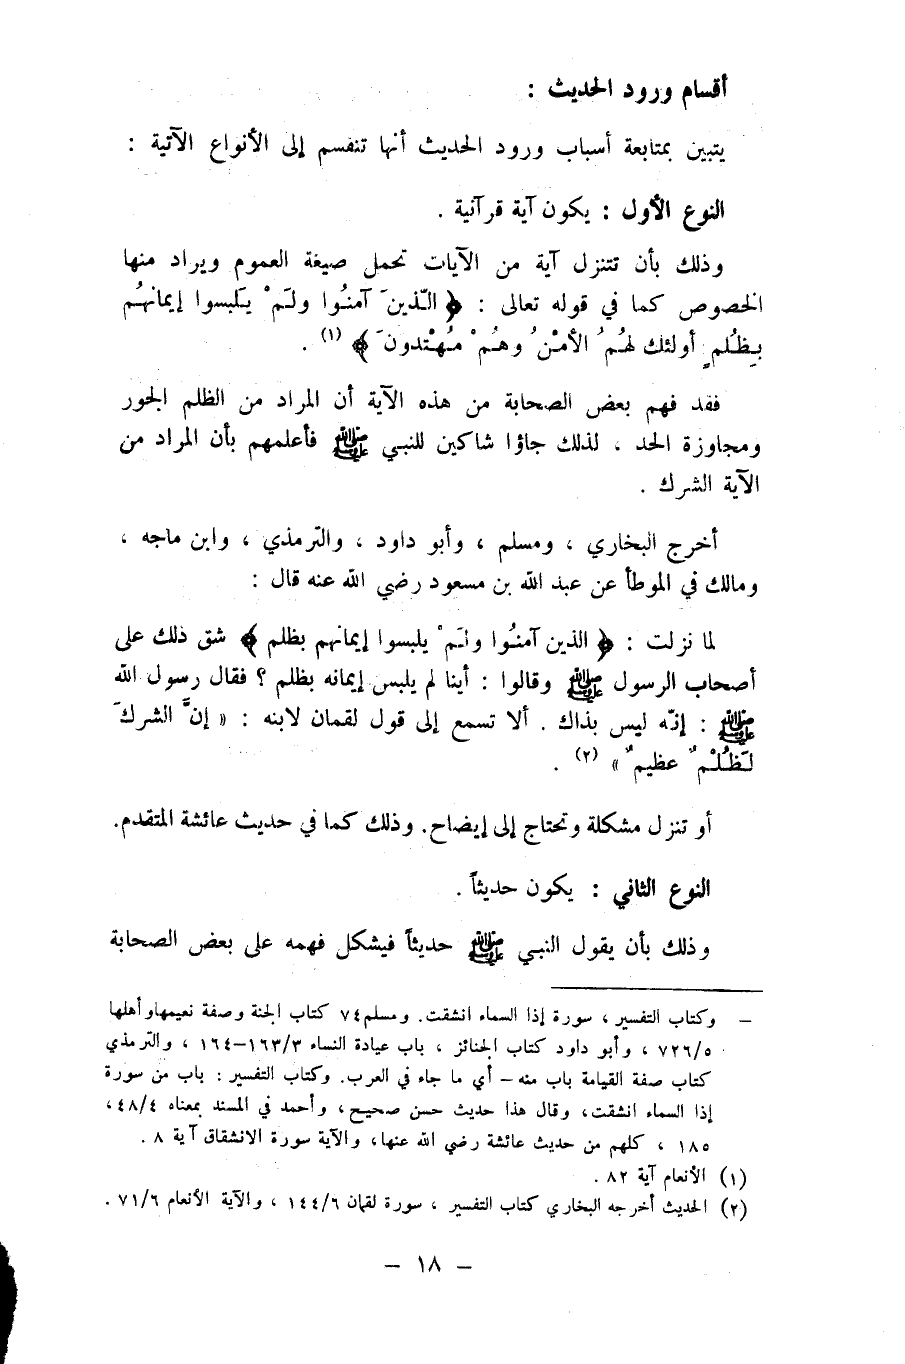 أقسام ورود الحديث :
يتبين بمتابعة أسباب ورود الحديث أنها تنقسم إلى الأنواع الآتية :
النوع الأول : يكون آية قرآنية .
وذلك بأن تتنزل آية من الآيات تحمل صيغة العموم ويراد منها
الخصوص كما في قوله تعالى : ﴿ الّذينَ آمنُوا ولَمْ يَلبسوا إيمانهُم
بِظُلمٍ أولئك لهُمُ الأمْنُ وهُمْ مُهْتدونَ ﴾ (١) .
فقد فهم بعض الصحابة من هذه الآية أن المراد من الظلم الجور
ومجاوزة الحد ، لذلك جاؤا شاكين للنبي ﷺ فأعلمهم بأن المراد من
الآية الشرك .
أخرج البخاري ، ومسلم ، وأبو داود ، والترمذي ، وابن ماجه ،
ومالك في الموطأ عن عبد الله بن مسعود رضي الله عنه قال :
لما نزلت : ﴿ الذين آمنُوا ولَمْ يلبسوا إيمانهم بظلم ﴾ شق ذلك على
أصحاب الرسول ﷺ وقالوا : أينا لم يلبس إيمانه بظلم ؟ فقال رسول الله
ﷺ : إنّه ليس بذاك . ألا تسمع إلى قول لقمان لابنه : « إنَّ الشركَ
لَظُلْمٌ عظيمٌ » (٢) .
أو تنزل مشكلة وتحتاج إلى إيضاح. وذلك كما في حديث عائشة المتقدم.
النوع الثاني : يكون حديثاً .
وذلك بأن يقول النبي ﷺ حديثاً فيشكل فهمه على بعض الصحابة
– وكتاب التفسير ، سورة إذا السماء انشقت. ومسلم٧٤ كتاب الجنة وصفة نعيمهاوأهلها
٧٢٦/٥ ، وأبو داود كتاب الجنائز ، باب عيادة النساء ١٦٣/٣–١٦٤ ، والترمذي
كتاب صفة القيامة باب منه – أي ما جاء في العرب. وكتاب التفسير : باب من سورة
إذا السماء انشقت، وقال هذا حديث حسن صحيح، وأحمد في المسند بمعناه ٤٨/٤،
١٨٥ ، كلهم من حديث عائشة رضي الله عنها، والآية سورة الانشقاق آية ٨ .
(١) الأنعام آية ٨٢ .
(٢) الحديث أخرجه البخاري كتاب التفسير ، سورة لقمان ١٤٤/٦ ، والآية الأنعام ٧١/٦ .
– ١٨ –